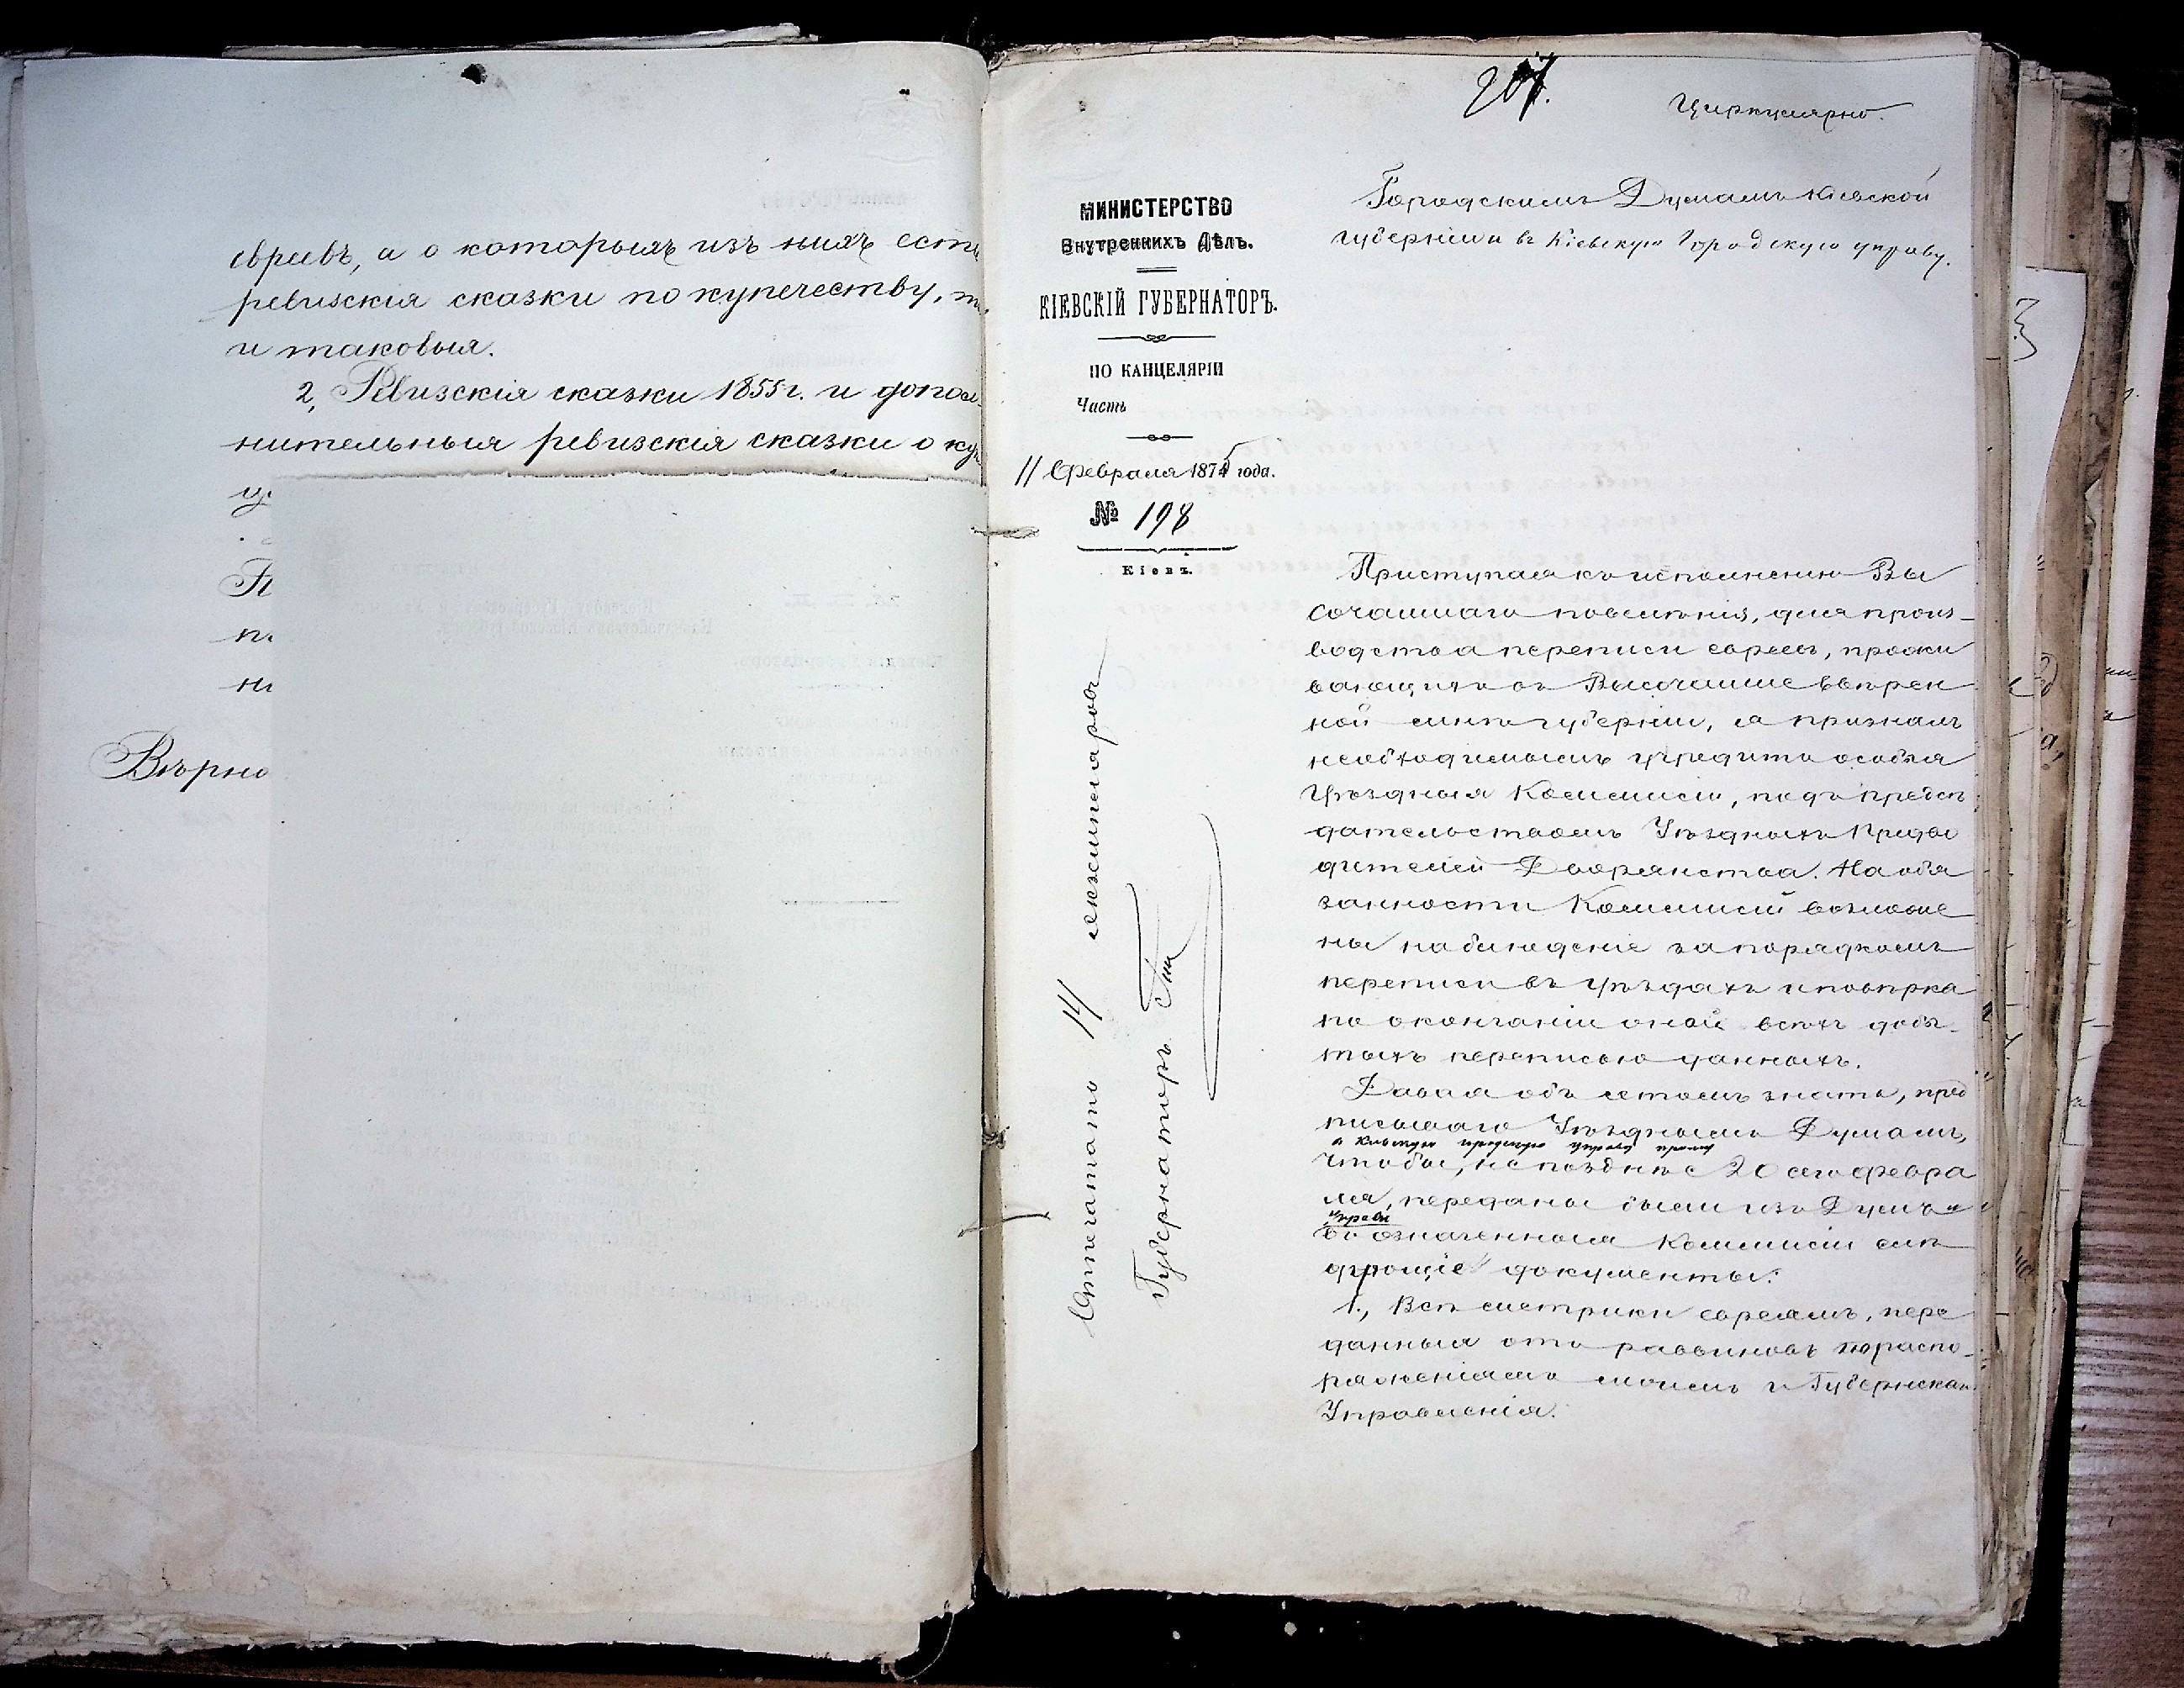 евреевъ, а о которыхъ изъ нихъ есть
ревизскія сказки по купечеству, то
и таковыя.
2, Ревизскія сказки 1855 г. и допол-
нительныя ревизскія сказки о куп
Вѣрно
207.
Циркулярно.
МИНИСТЕРСТВО
Внутреннихъ Дѣлъ.
КІЕВСКІЙ ГУБЕРНАТОРЪ.
ПО КАНЦЕЛЯРІИ
Часть
11 Февраля 1875 года.
№ 198
Кіевъ.
Городскимъ Думамъ Кіевской
губерніи и въ Кіевскую Городскую управу.
Приступая къ исполненію Вы
сочайшаго повелѣнія, для произ-
водства переписи евреевъ, прожи
вающихъ въ Высочайше ввѣрен
ной мнѣ губерніи, я призналъ
необходимымъ учредить особыя
Уѣздныя Коммисіи, подъ предсѣ
дательствомъ Уѣздныхъ Предво
дителей Дворянства. На обя
занности Коммисій возложе
ны наблюденіе за порядкомъ
переписи въ уѣздахъ и повѣрка
по окончаніи оной всѣхъ добы-
тыхъ переписью данныхъ.
Давая объ этомъ знать, пред
писываю Уѣзднымъ Думамъ,
а Кіевскую городскую управу прошу
чтобы, не позднѣе 20 сего февра
ля, переданы были изъ Думъ и
управы
въ означенныя Коммисіи слѣ
дующіе документы:
1., Всѣ метрики евреямъ, пере
данныя отъ раввиновъ по распо-
ряженіямъ моимъ и Губернскаго
Управленія.
Отпечатано 14 экземпляровъ
Губернаторъ